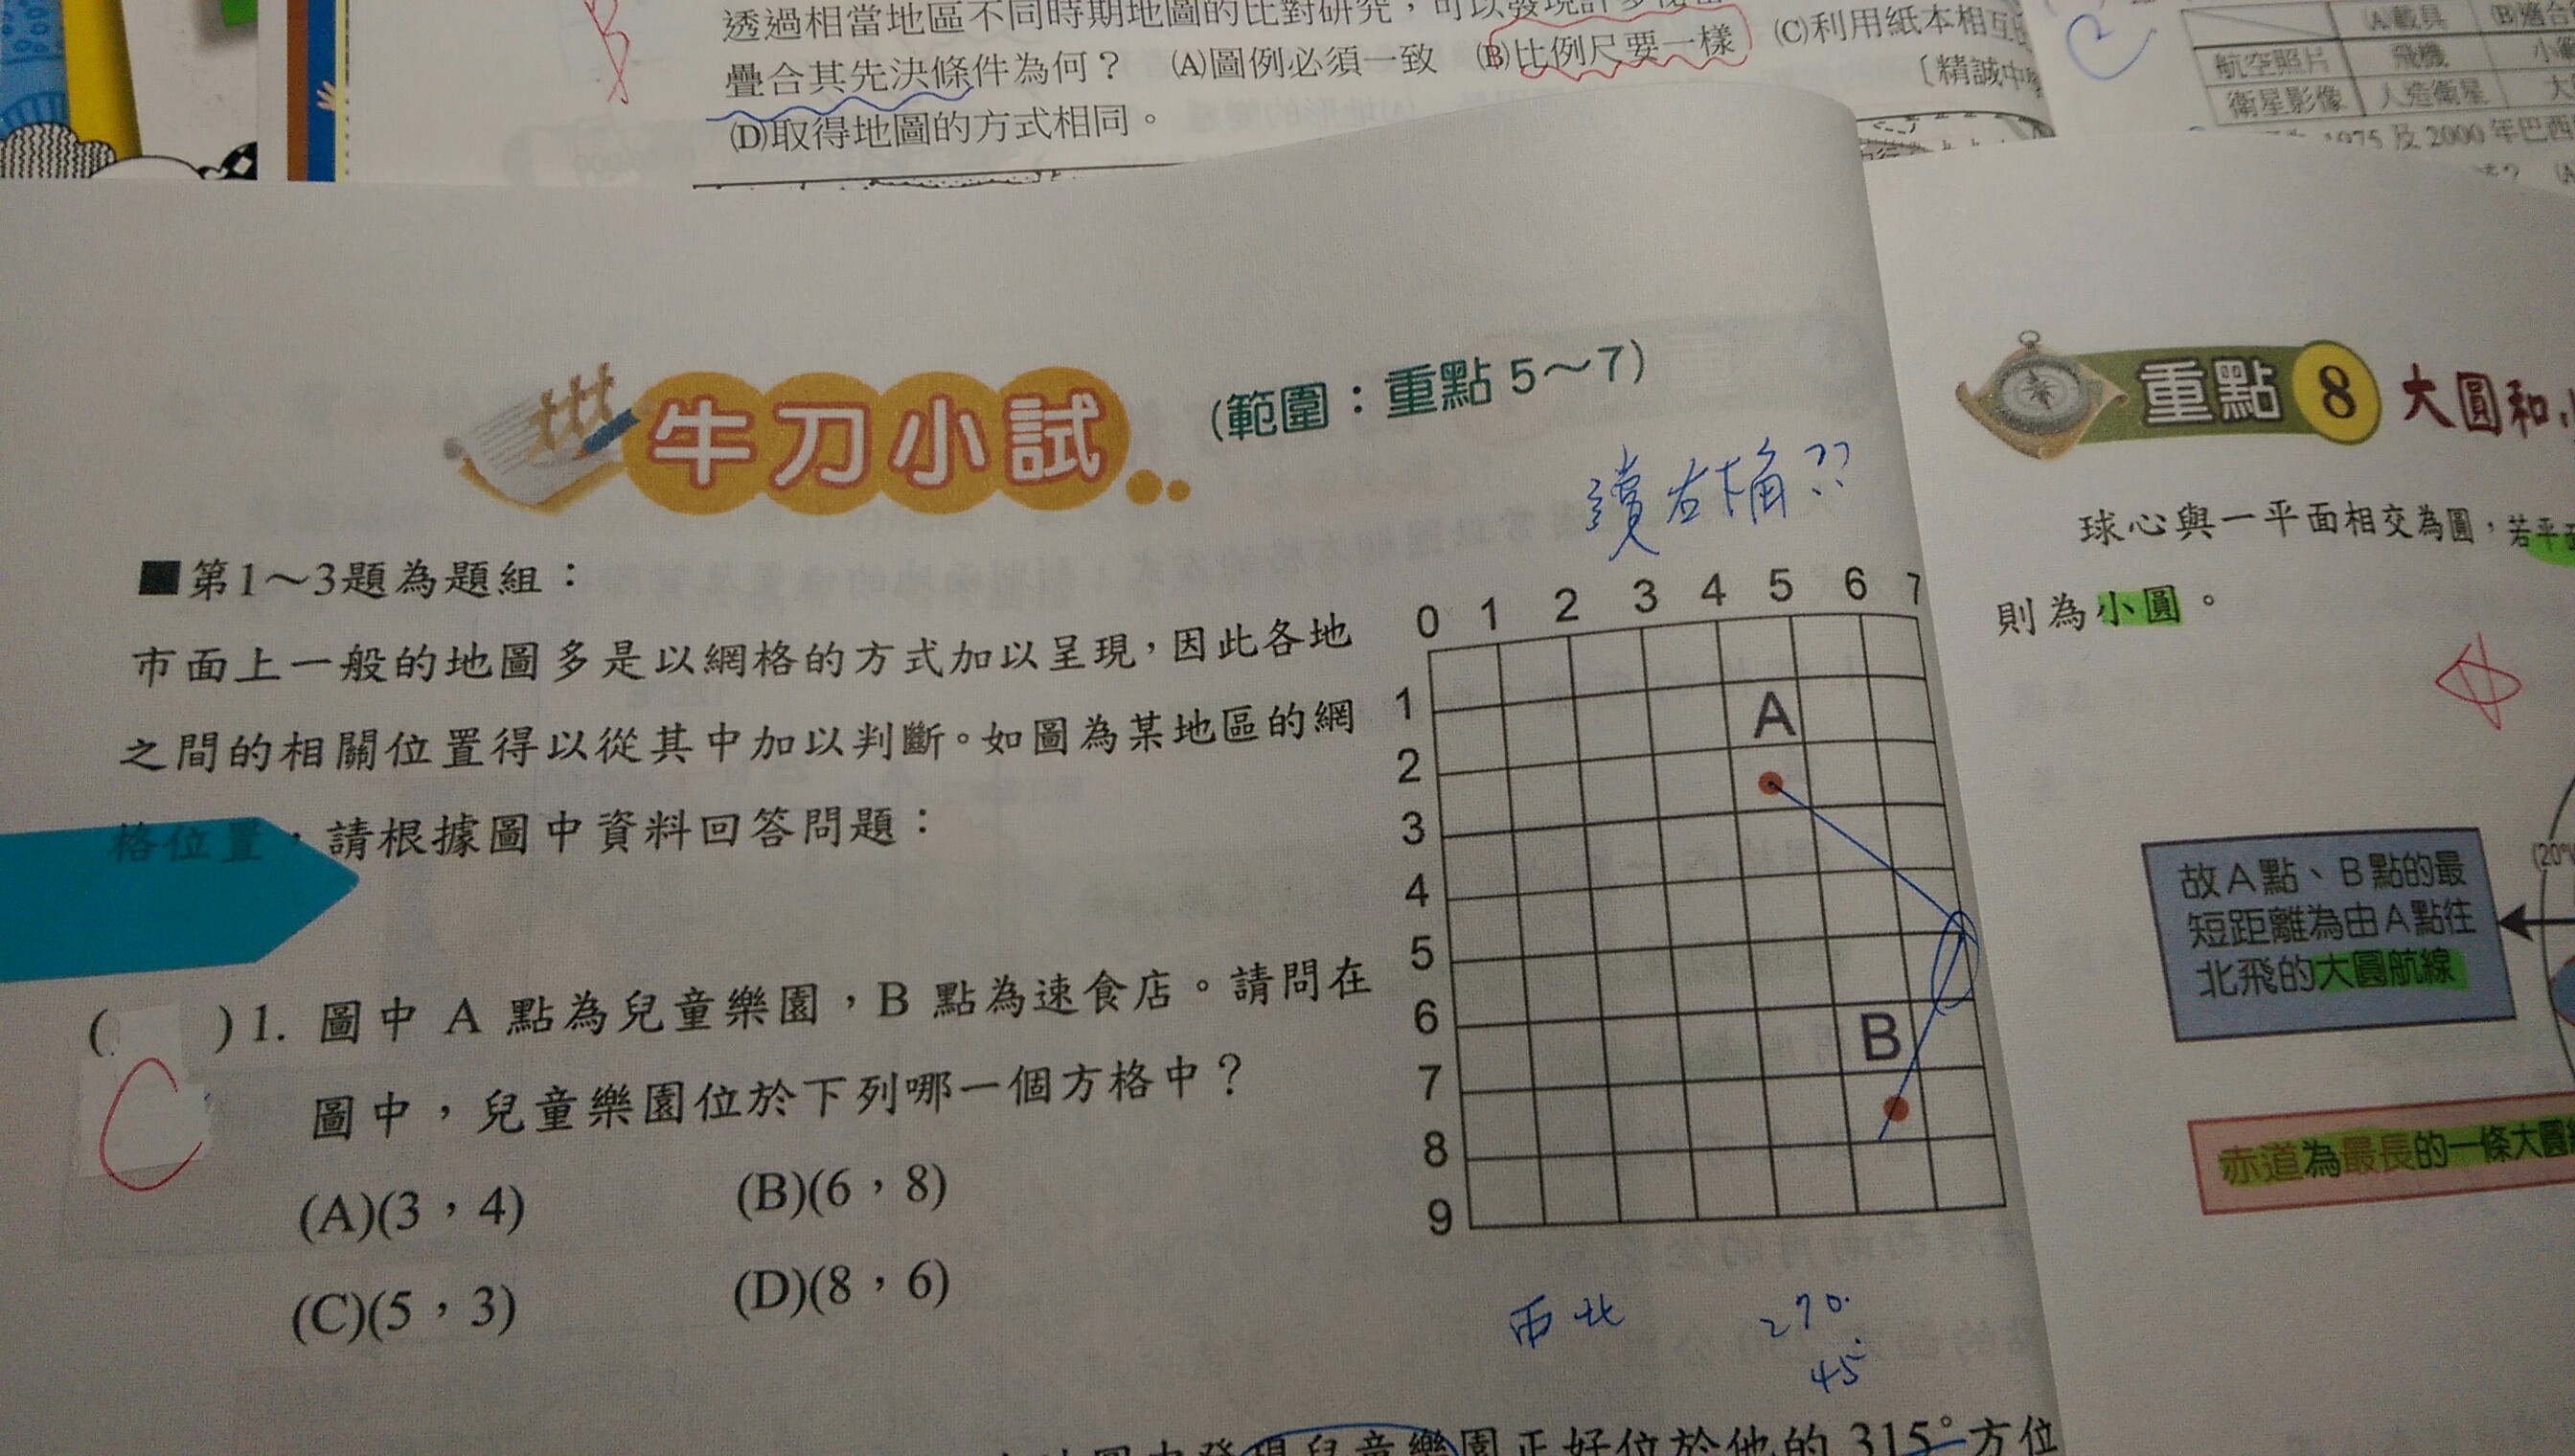 透過相當地區不同時期地圖的比對研究，可以發現許多
疊合其先決條件為何？ (A)圖例必須一致 (B)比例尺要一樣 (C)利用紙本相互
(D)取得地圖的方式相同。
〔精誠中學
B
(A)載具 (B)適合
航空照片 飛機 小範
衛星影像 人造衛星 大
1975 及 2000 年巴西
牛刀小試
(範圍：重點 5～7)
讀右下角??
■第1～3題為題組：
市面上一般的地圖多是以網格的方式加以呈現，因此各地
之間的相關位置得以從其中加以判斷。如圖為某地區的網
格位置，請根據圖中資料回答問題：
0 1 2 3 4 5 6 7
1
A
2
3
4
5
6
B
7
8
9
( )1. 圖中 A 點為兒童樂園，B 點為速食店。請問在
C
圖中，兒童樂園位於下列哪一個方格中？
(A)(3，4) (B)(6，8)
(C)(5，3) (D)(8，6)
西北 270
45
兒童樂園正好位於他的 315°方位
重點 8 大圓和
球心與一平面相交為圓，若平面
則為小圓。
故A點、B點的最
短距離為由A點往
北飛的大圓航線
(20°
赤道為最長的一條大圓